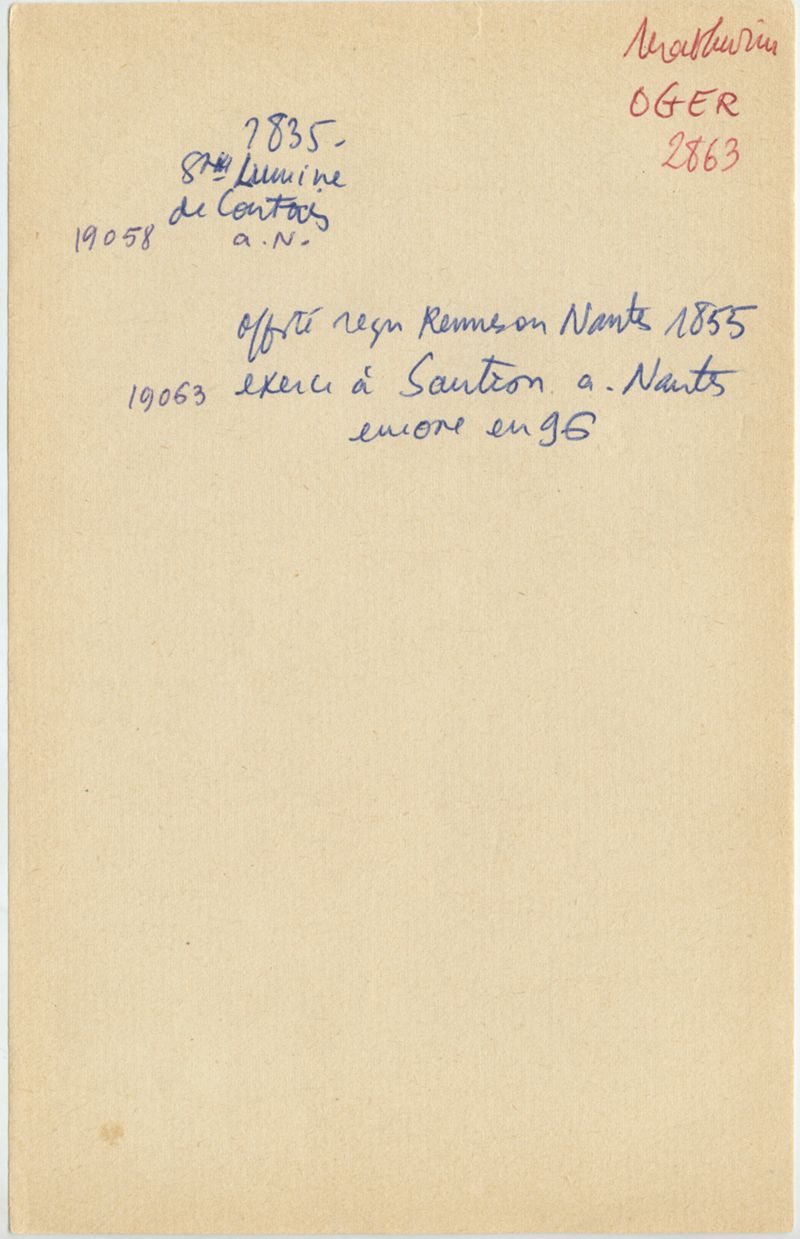 Mathurin
OGER
2863
1835.
Ste Lumine
de Coutais
19058 a. N.
offité reçu Rennes ou Nantes 1855
19063 exerce à Sautron a. Nantes
encore en 96